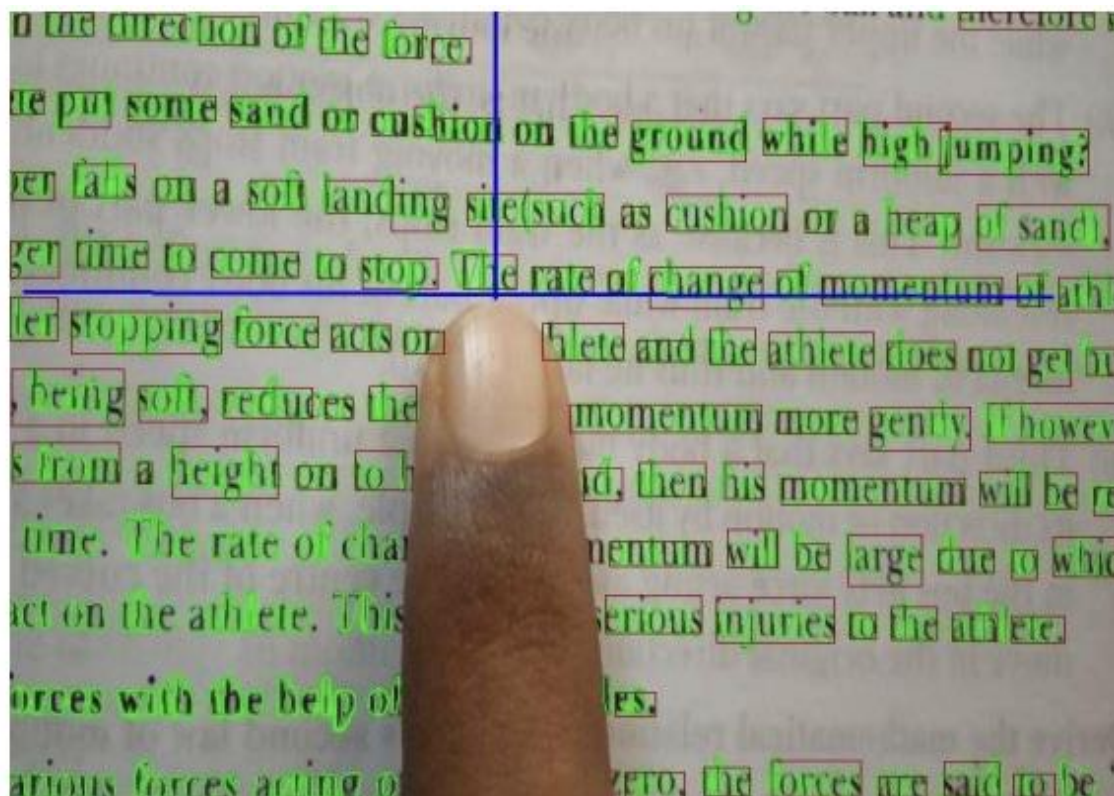 and therefore
n the direction of the force.
put some sand or cushion on the ground while high jumping?
falls on a soft landing site(such as cushion or a heap of sand).
ger time to come to stop. The rate of change of momentum of athl
ler stopping force acts on hlete and the athlete does not get hu
, being soft, reduces the momentum more gently. If howev
s from a height on to h nd, then his momentum will be r
time. The rate of chan mentum will be large due to whic
act on the athlete. This serious injuries to the athlete.
orces with the help of les.
arious forces acting o zero, the forces are said to be